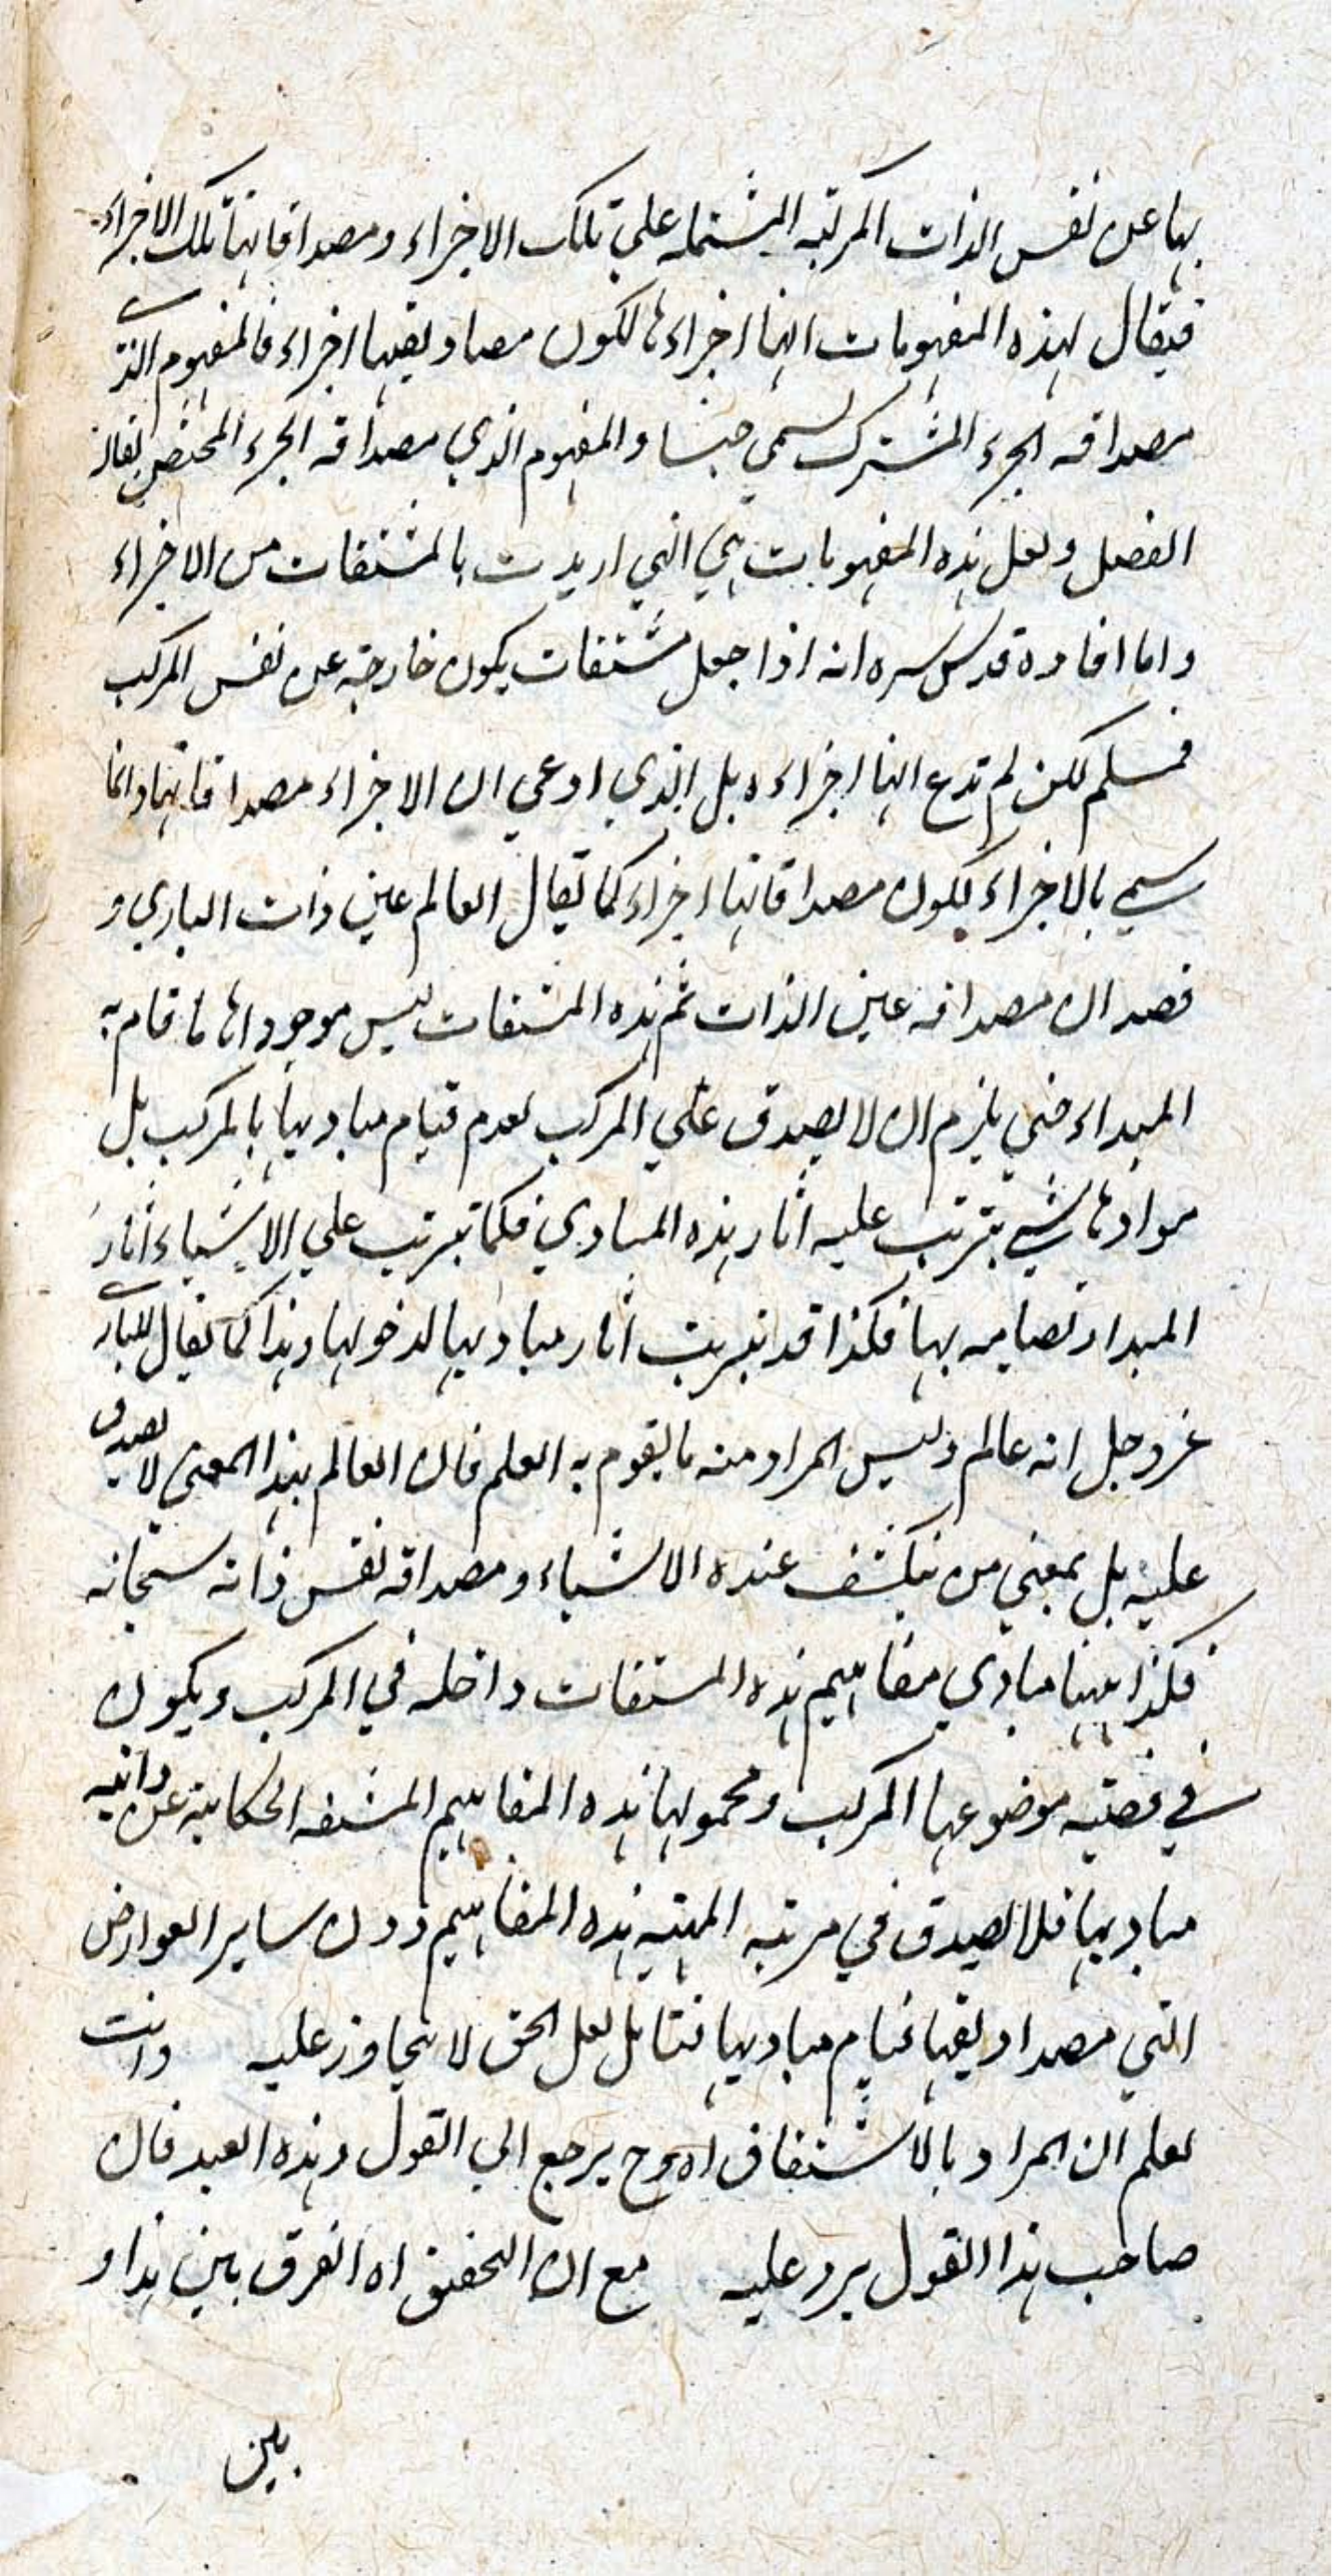 بها عن نفس الذات المركبة المشتملة علي تلك الاجزاء ومصداقاتها تلك الاجزاء
فيقال لهذه المفهومات انها اجزاءها لكون مصاديقها اجزاء فالمفهوم الذي
مصداقه الجزء المشترك يسمي جنسا والمفهوم الذي مصداقه الجزء المختص يقال له
الفصل ولعل هذه المفهومات هي التي اريدت بالمشتقات من الاجزاء
واما افاده قدس سره انه اذا جعل مشتقات يكون خارجة عن نفس المركب
فمسلم لكن لم ندع انها اجزاءه بل الذي ادعي ان الاجزاء مصداقاتها وانما
سمي بالاجزاء لكون مصداقاتها اجزاء كما يقال العالم عين ذات الباري و
قصد ان مصداقه عين الذات ثم هذه المشتقات ليس موجوداها ما قام به
المبداء حتي يلزم ان لا يصدق علي المركب لعدم قيام مباديها بالمركب بل
موادها شيي يترتب عليه اثار هذه المبادي فكما تيرتب علي الاشياء اثار
المبدا وتصامه بها فكذا قد تيرتب اثار مباديها لدخولها وهذا كما يقال للباري
عزوجل انه عالم وليس المراد منه ما يقوم به العلم فان العالم بهذا المعني لا يصدق
عليه بل بمعني من ينكشف عنده الاشياء ومصداقه نفس ذاته سبحانه
فكذا ههنا مبادي مفاهيم هذه المشتقات داخله في المركب ويكون
في قضية موضوعها المركب ومحمولها هذه المفاهيم المشتقه الحكاية عن ذاتيه
مباديها فلا يصدق في مرتبه المهيته هذه المفاهيم دون ساير العوارض
التي مصداديقها قيام مباديها فتامل لعل الحق لا يتجاوز عليه وانت
تعلم ان المراد بالاشتقاق اه وح يرجع الي القول وهذه العبد فان
صاحب هذا القول يرد عليه مع ان التحقيق اه الفرق بين هذا و
بين